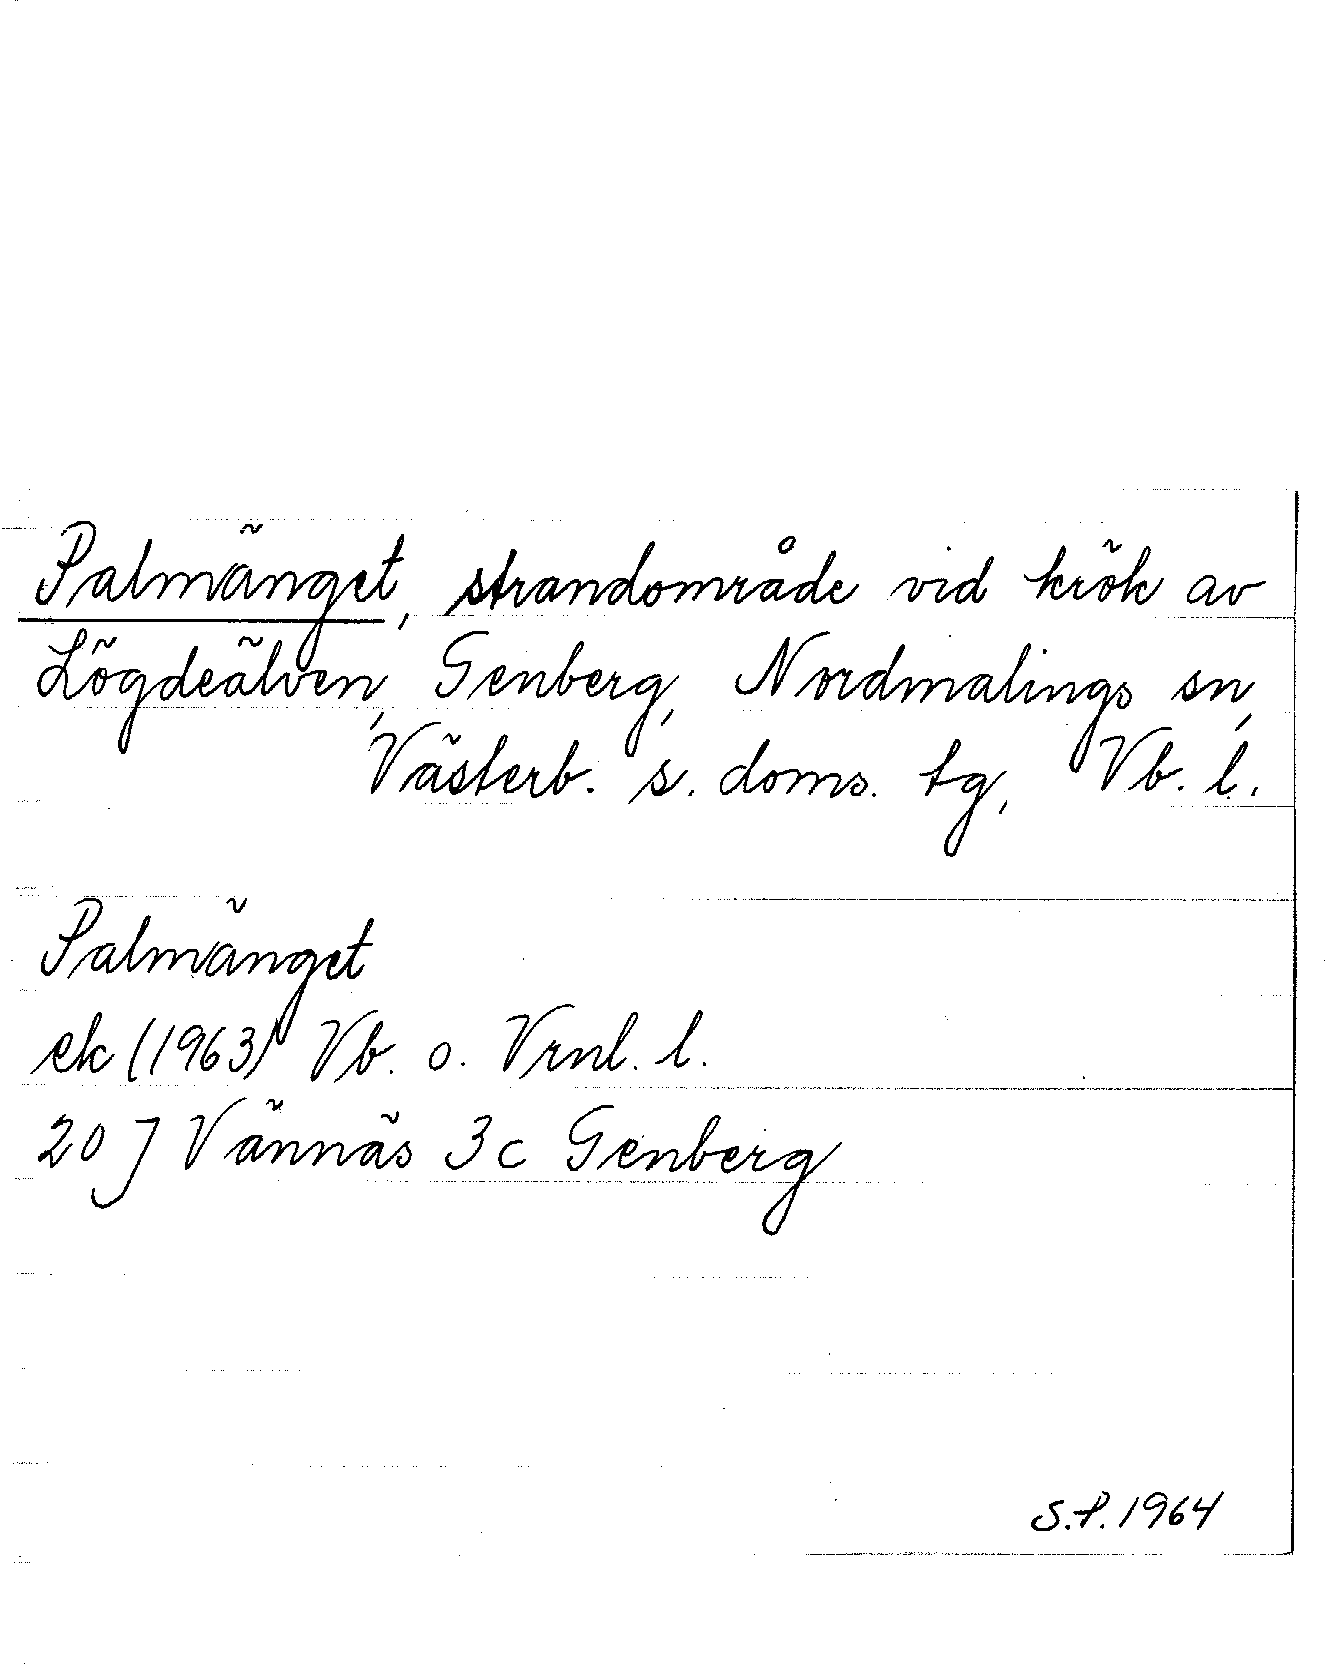 Palmänget, strandområde vid krök av
Lögdeälven, Genberg, Nordmalings sn,
Västerb. s. doms. tg, Vb. l.
Palmänget
ek (1963) Vb. o. Vrnl. l.
20 J Vännäs 3c Genberg
S.P. 1964